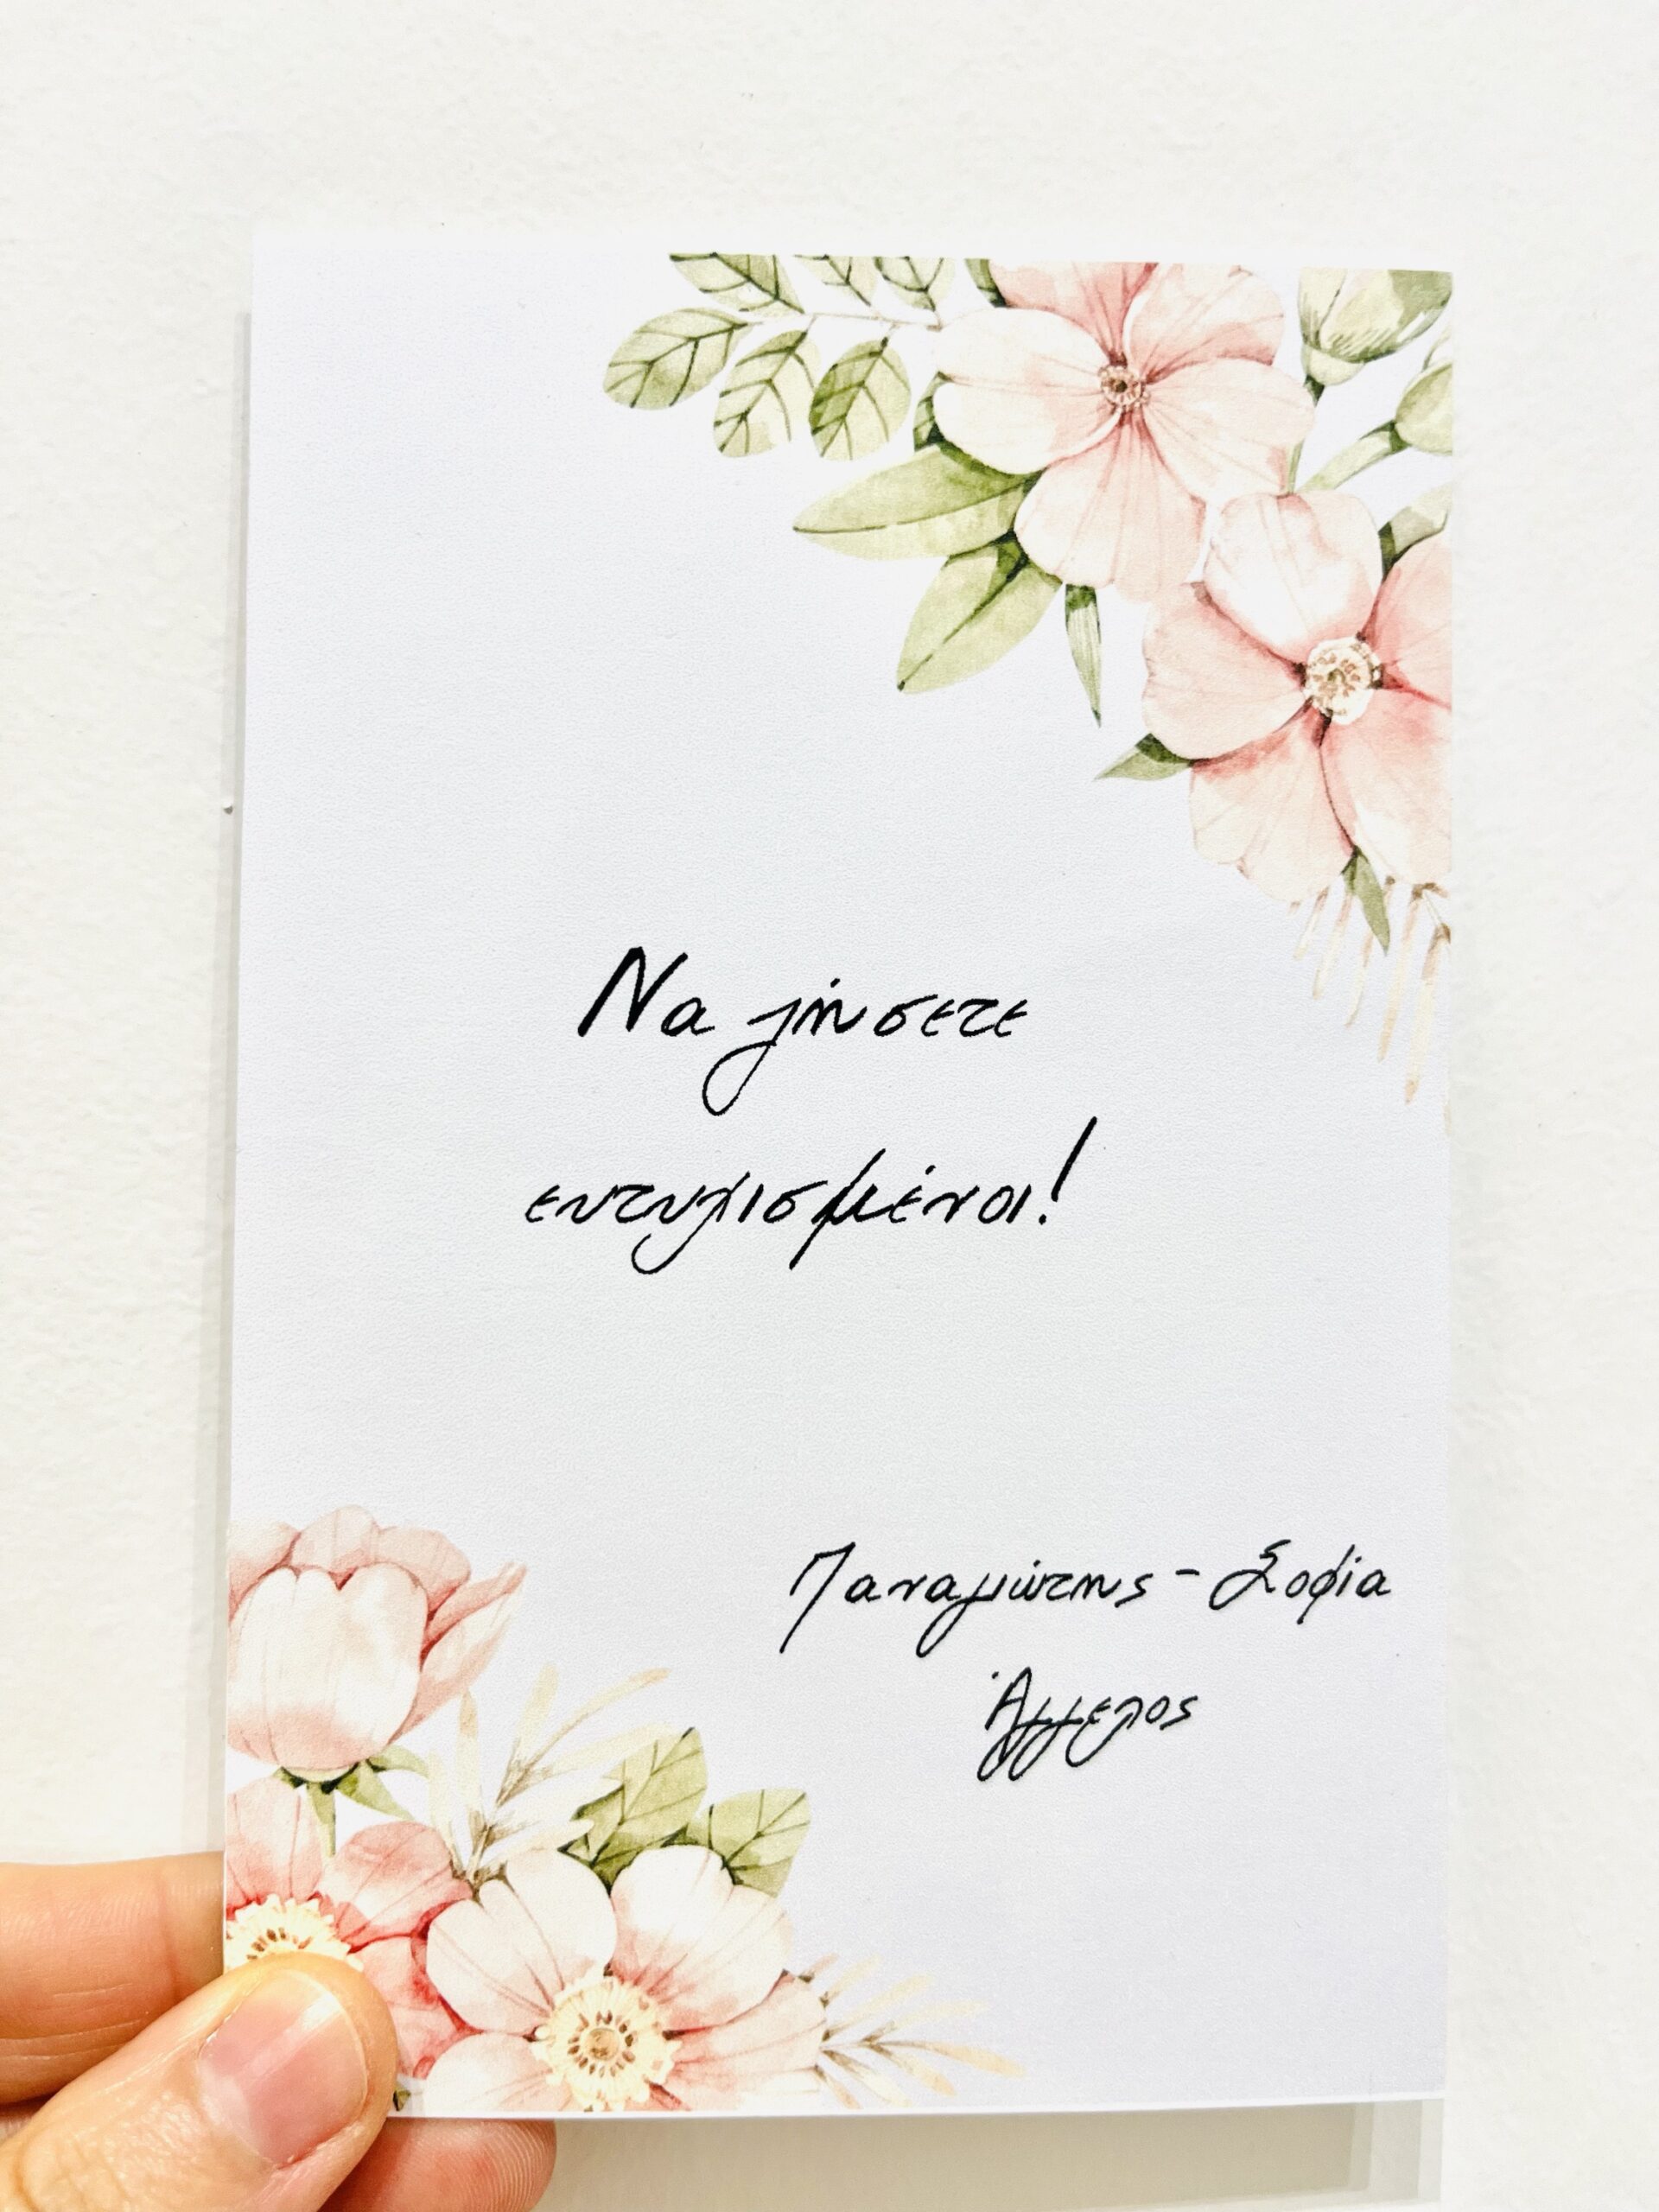 Να ζήσετε
ευτυχισμένοι!
Παναγιώτης - Σοφία
Άγγελος